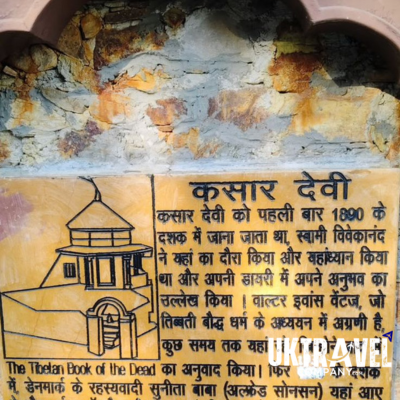 कसार देवी
कसार देवी को पहली बार 1890 के
दशक में जाना जाता था, स्वामी विवेकानंद
ने यहां का दौरा किया और यहांध्यान किया
था और अपनी डायरी में अपने अनुभव का
उल्लेख किया । वाल्टर इवांस वेंटज, जो
तिब्बती बौद्ध धर्म के अध्ययन में अग्रणी है,
कुछ समय तक
UKTRAVEL
COMPANY
The Tibetan Book of the Dead का अनुवाद किया। फिर
में, डेनमार्क के रहस्यवादी सुनीता बाबा (अल्फ्रेड सोनसन) यहां आए